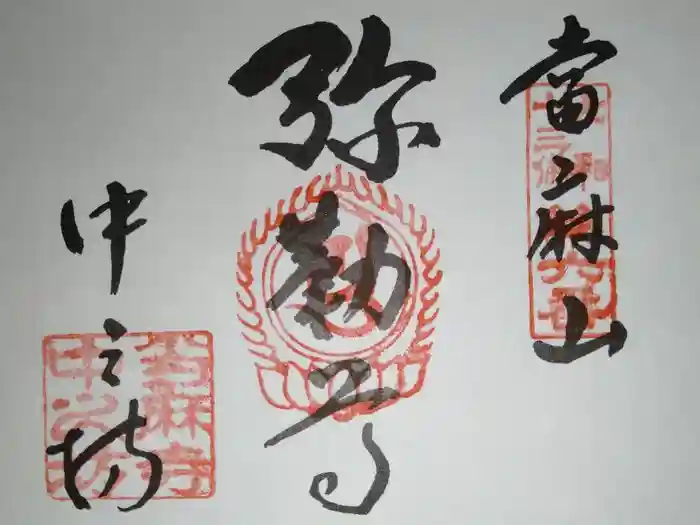 當麻山
弥勒尊
中之坊
當麻寺
中之坊